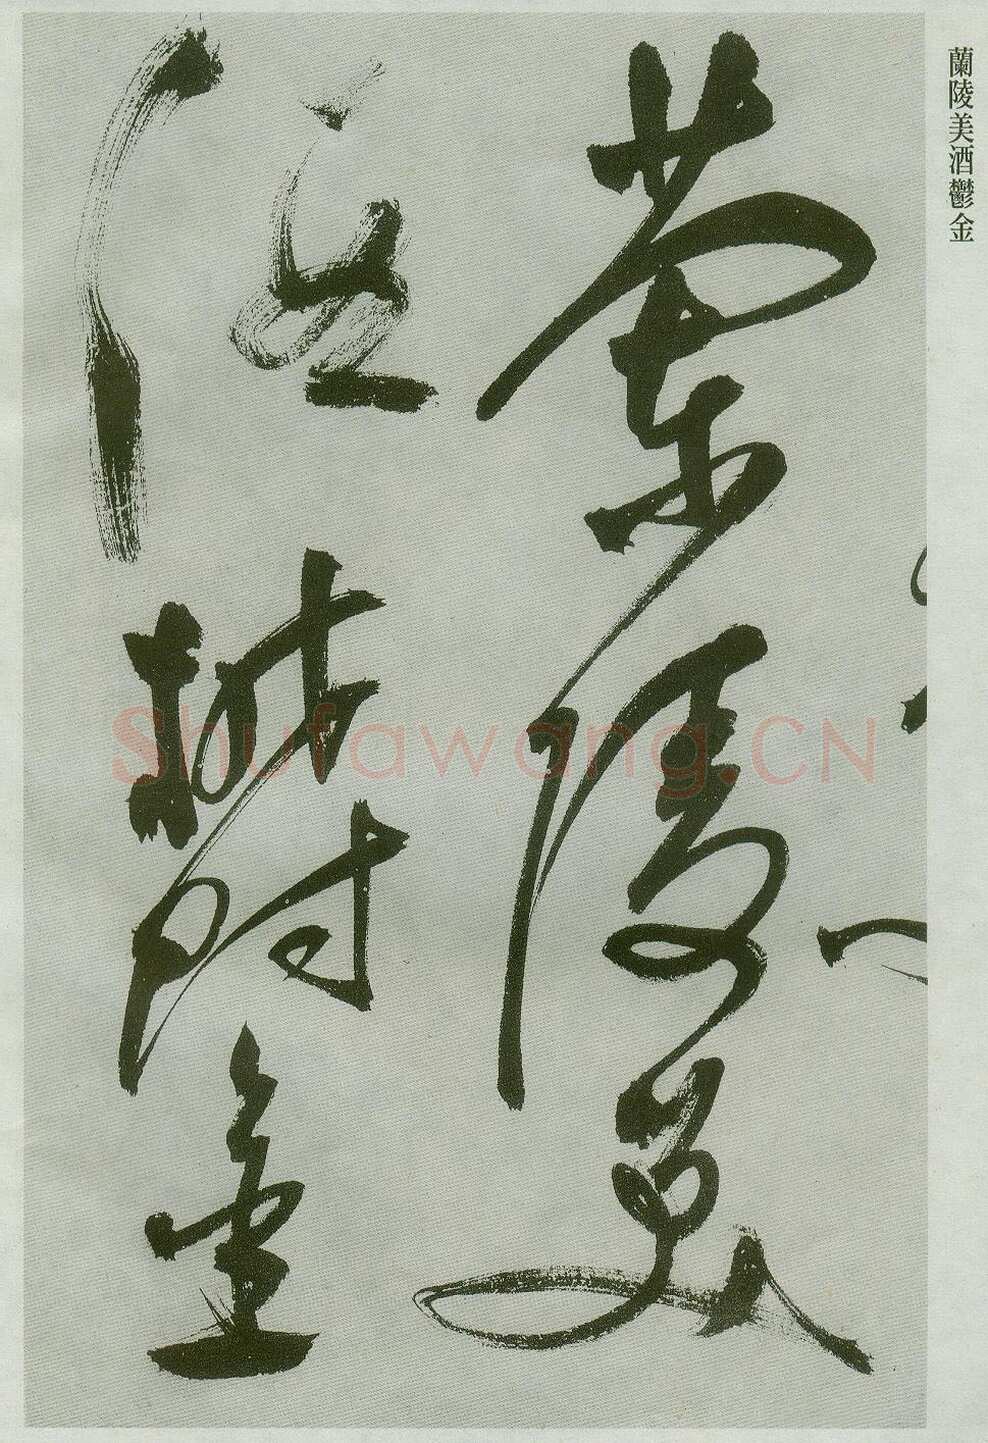 蘭陵美
酒鬱金
蘭陵美酒鬱金
Shufawang.CN